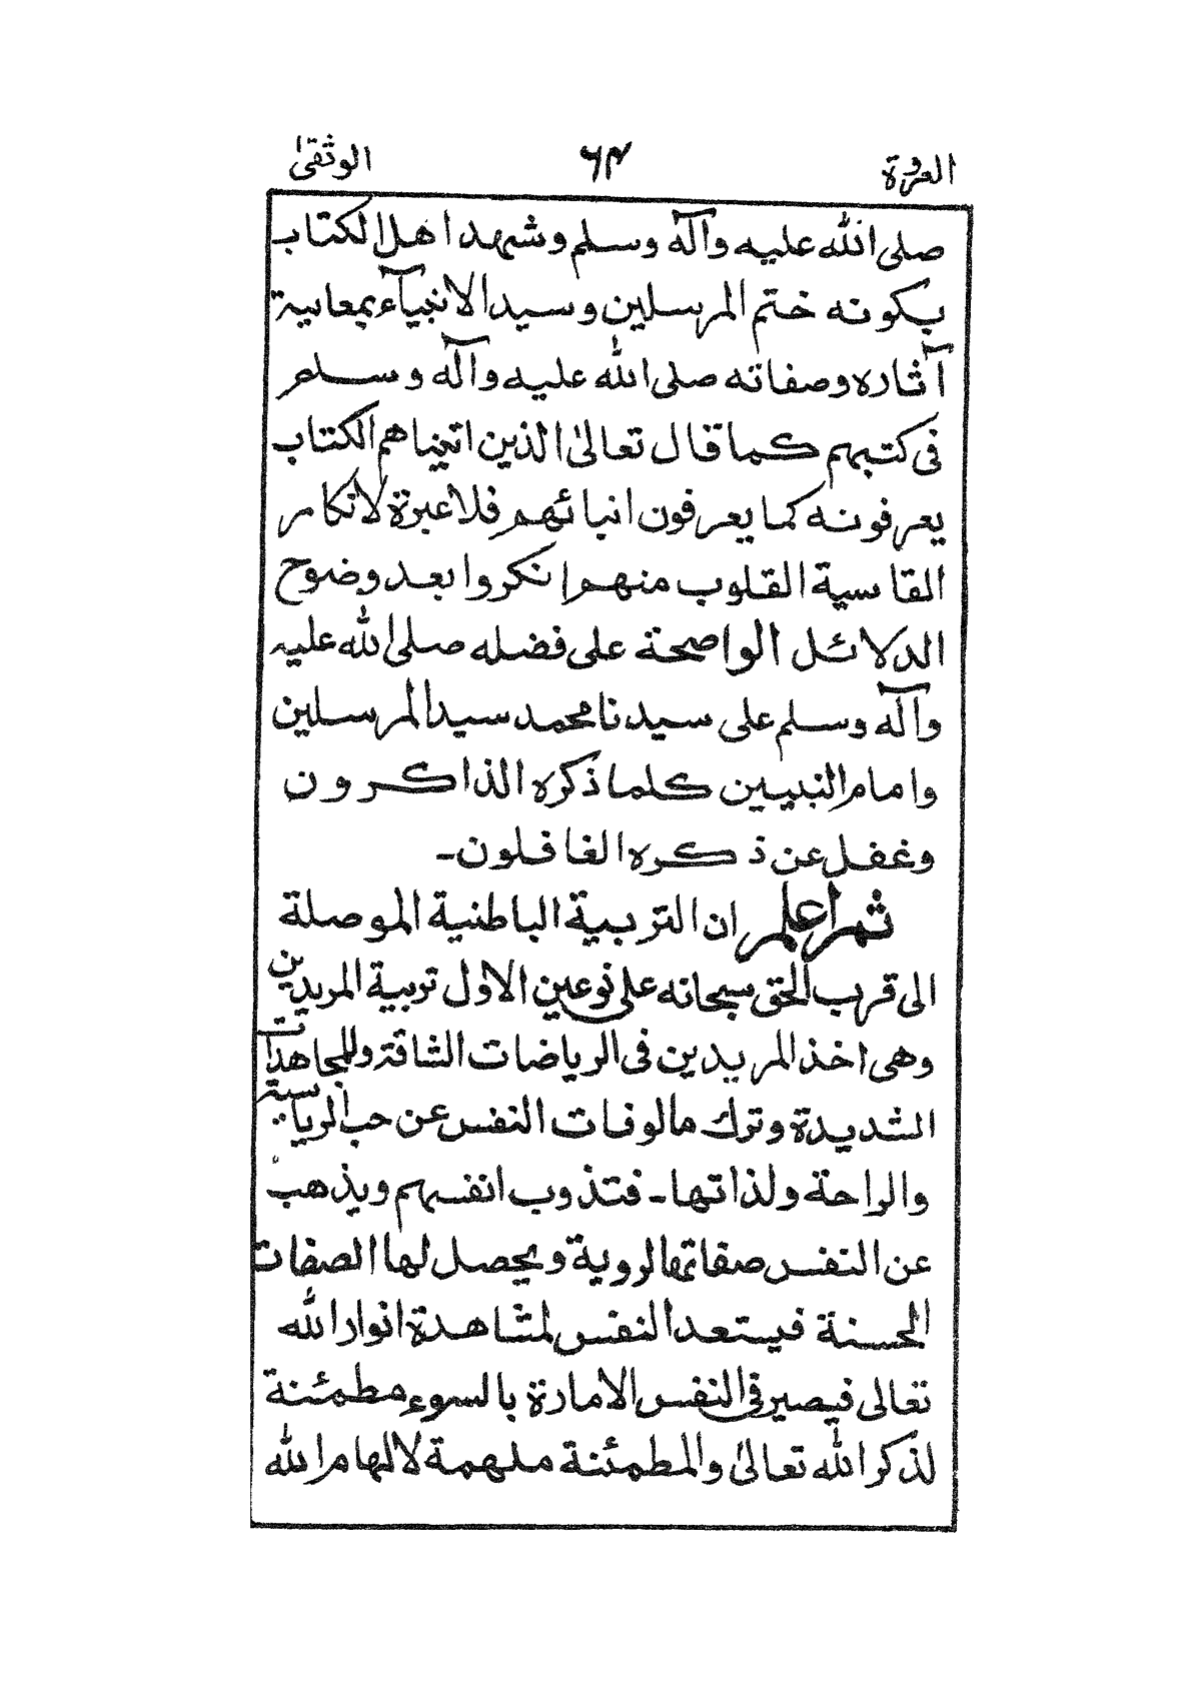 العروة ٦٤ الوثقىٰ
صلى الله عليه وآله وسلم وشهد اهل الكتاب
بكونه ختم المرسلين وسيد الانبيآء بمعاينة
آثاره وصفاته صلى الله عليه وآله وسلم
فى كتبهم كما قال تعالىٰ الذين اتيناهم الكتاب
يعرفونه كما يعرفون ابنائهم فلا عبرة لانكار
القاسية القلوب منهم انكروا بعد وضوح
الدلائل الواضحة على فضله صلى الله عليه
وآله وسلم على سيدنا محمد سيد المرسلين
وامام النبيين كلما ذكره الذاكرون
وغفل عن ذكره الغافلون۔
ثم اعلم ان التربية الباطنية الموصلة
الى قرب الحق سبحانه على نوعين الاول تربية المريدين
وهى اخذ المريدين فى الرياضات الشاقة والمجاهدات
الشديدة وترك مالوفات النفس عن حب الرياسة
والراحة ولذاتها۔ فتذوب انفسهم ويذهب
عن النفس صفاتها الروية ويحصل لها الصفات
الحسنة فيستعد النفس لمشاهدة انوار الله
تعالى فيصير فى النفس الامارة بالسوء مطمئنة
لذكر الله تعالىٰ والمطمئنة ملهمة لالهام الله